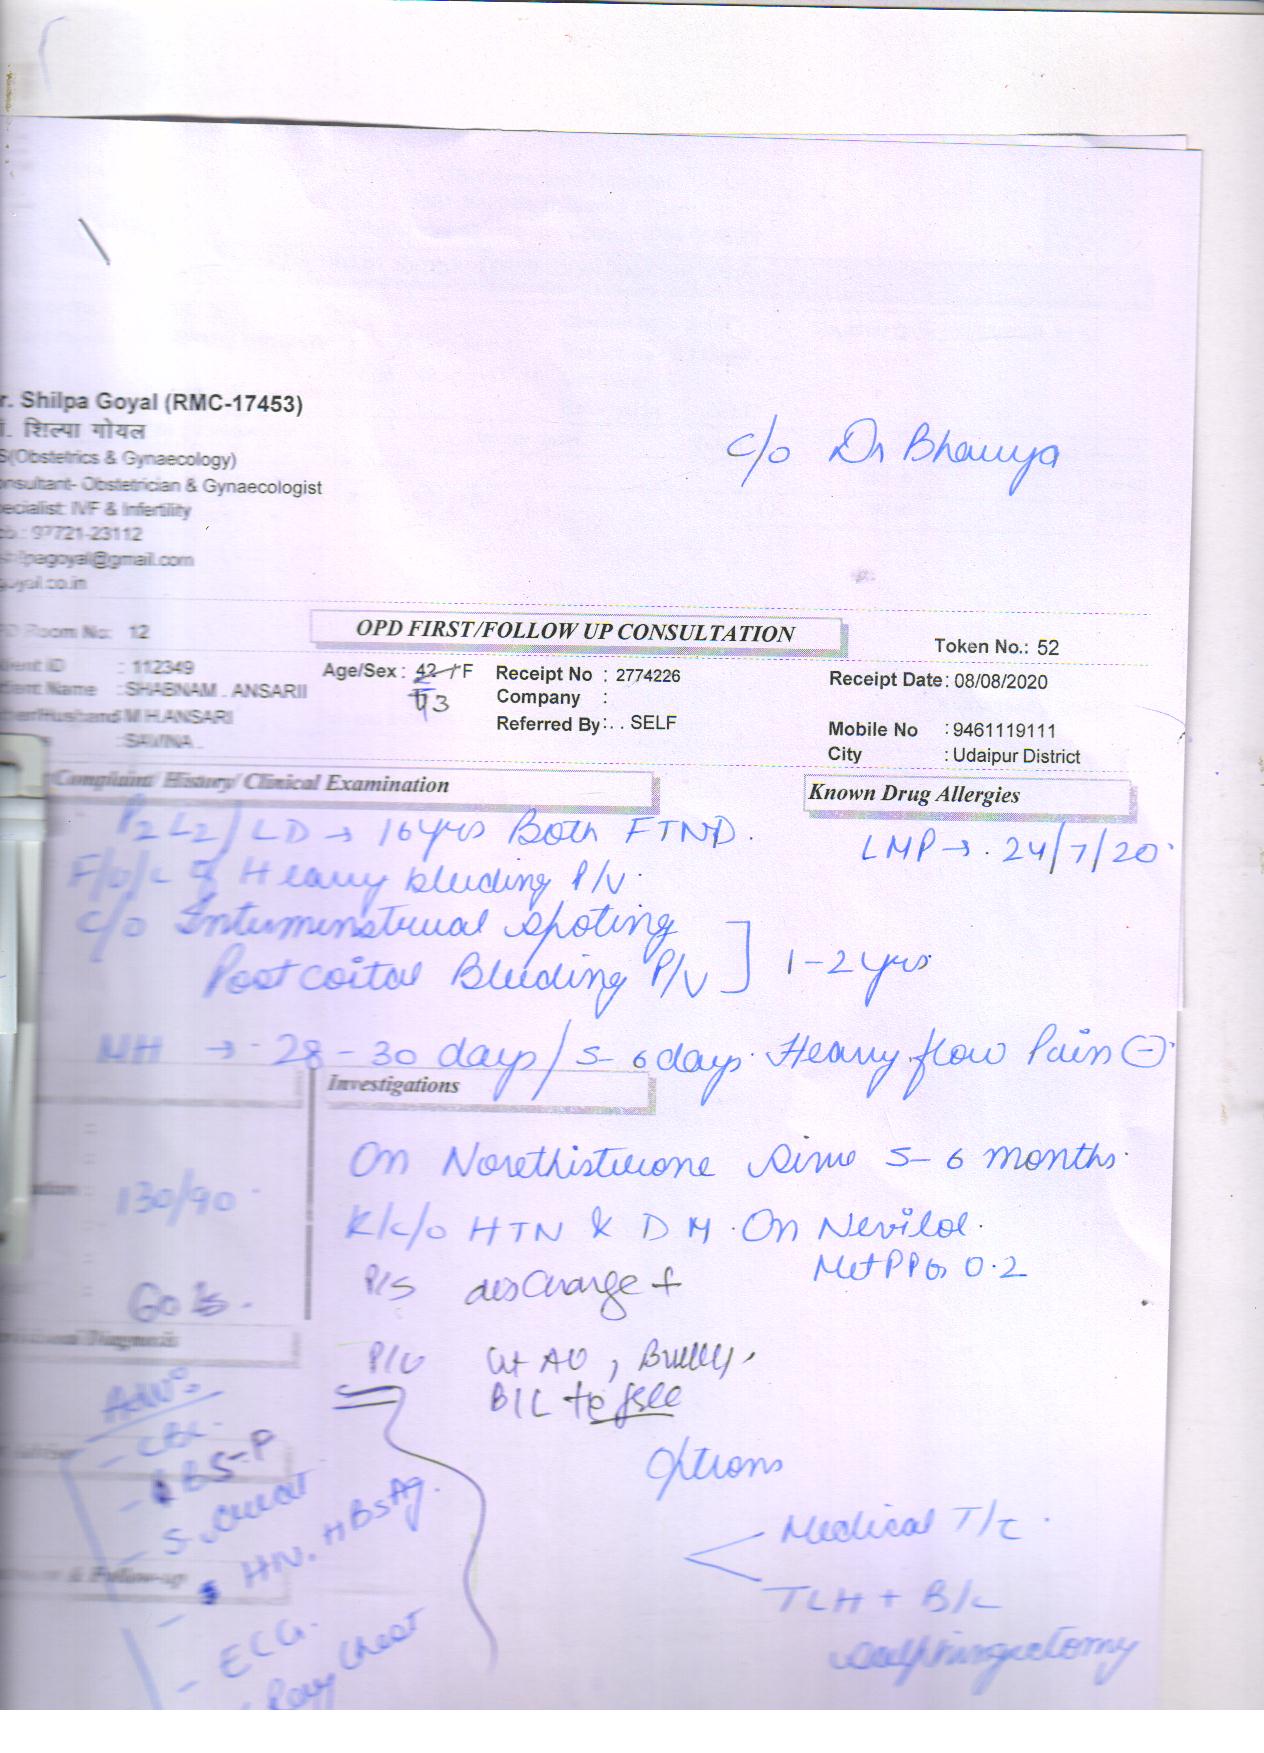 r. Shilpa Goyal (RMC-17453)
. शिल्पा गोयल
S(Obstetrics & Gynaecology)
onsultant- Obstetrician & Gynaecologist
ecialist: IVF & Infertility
ob.: 97721-23112
pagoyal@gmail.com
goyal.co.in
c/o Dr Bhavya
D Room No: 12
OPD FIRST/FOLLOW UP CONSULTATION
Token No.: 52
ient ID : 112349
Age/Sex : 42 F
43
Receipt No : 2774226
Receipt Date: 08/08/2020
tient Name : SHABNAM . ANSARII
Company :
her/Husband M H.ANSARI
Referred By: . . SELF
Mobile No : 9461119111
: SAVINA .
City : Udaipur District
Complaint/ History/ Clinical Examination
Known Drug Allergies
P2L2 / LD → 16 yrs Both FTND.
LMP → . 24/7/20
F/U/C of Heavy bleeding P/V.
c/o Intermenstrual spoting
Post coital Bleeding P/V ] 1-2 yrs
MH → 28-30 days / 5-6 days. Heavy flow Pain ⊖
Investigations
On Norethisterone since 5-6 months.
130/90
K/c/o HTN & DM. On Nevilol.
MetPPG 0.2
P/S discharge +
60 kg.
al Diagnosis
P/V Ut AV, Bulky,
B/L fx free
Adv:
- CBC
- RBS-P
- S. Creat
- HIV. HBsAg.
& Follow-up
- ECG.
X Ray Chest
Options
Medical T/t.
TLH + B/L
salphingectomy